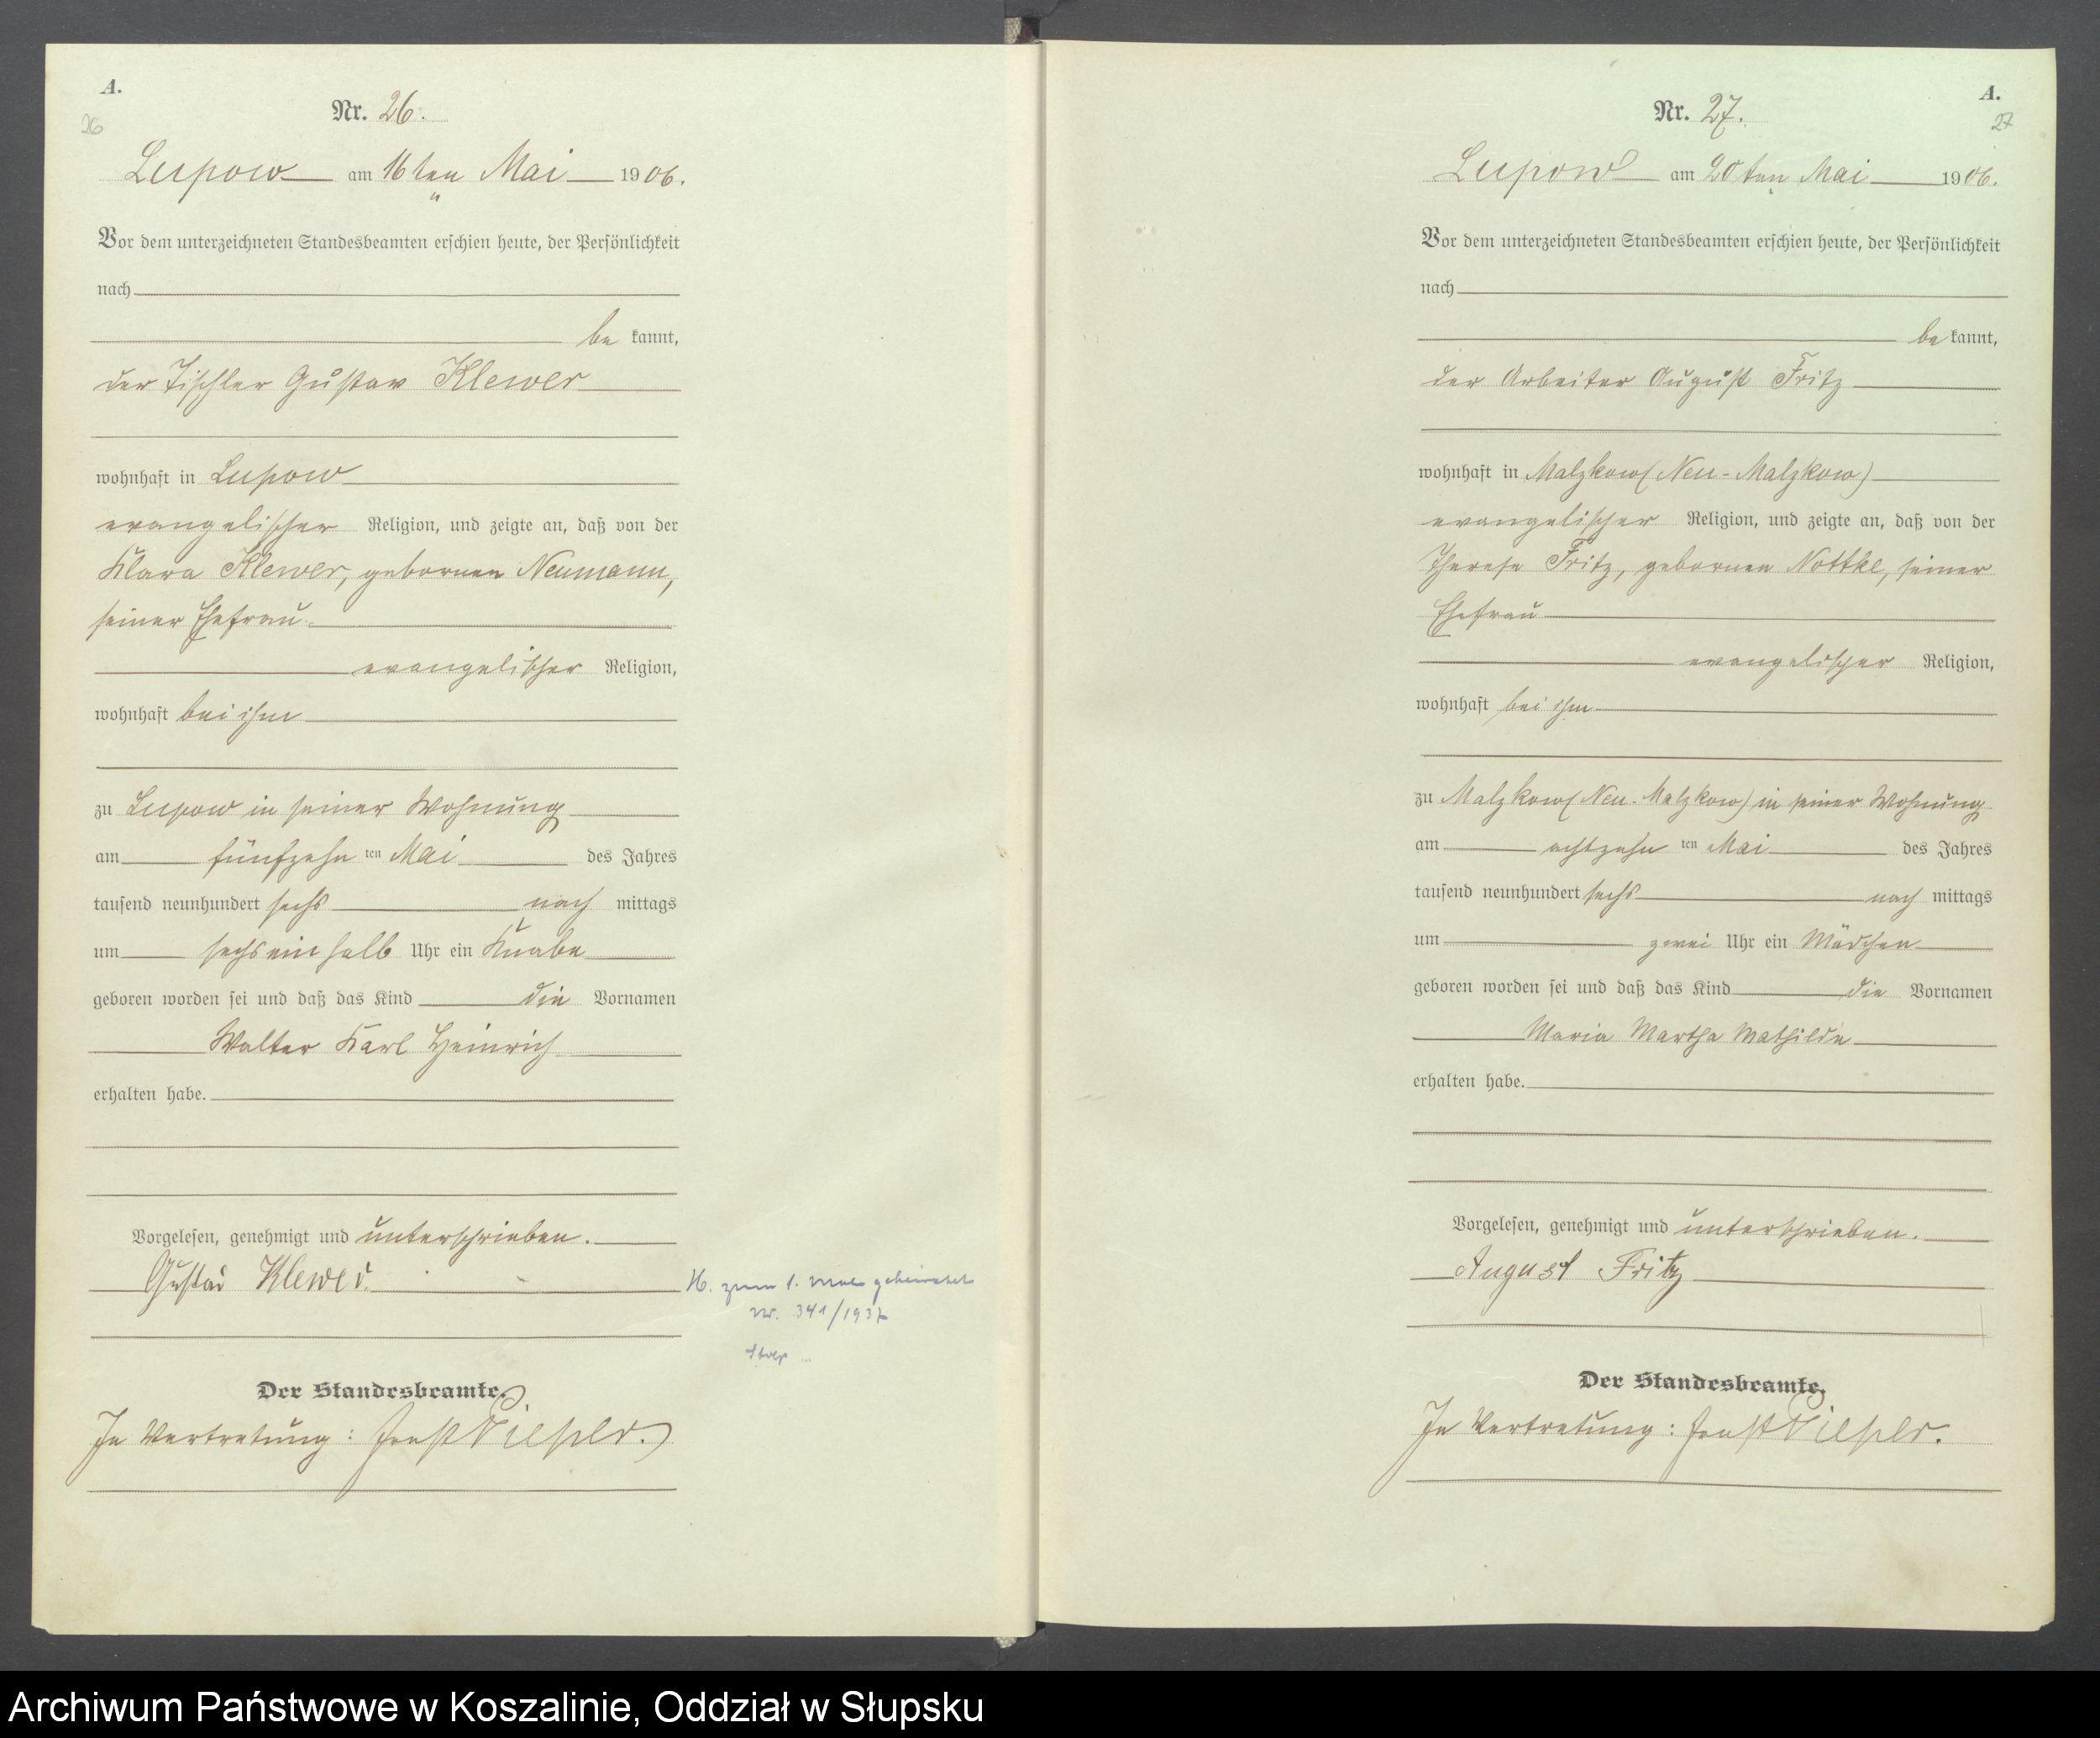 A.
26
Nr. 26.
Lupow am 16ten Mai 1906.
Vor dem unterzeichneten Standesbeamten erschien heute, der Persönlichkeit
nach
be kannt,
der Tischler Gustav Klewer
wohnhaft in Lupow
evangelischer Religion, und zeigte an, daß von der
Klara Klewer, geborenen Neumann,
seiner Ehefrau
evangelischer Religion,
wohnhaft bei ihm
zu Lupow in seiner Wohnung
am fünfzehn ten Mai des Jahres
tausend neunhundert sechs nach mittags
um sechs ein halb Uhr ein Knabe
geboren worden sei und daß das Kind die Vornamen
Walter Karl Heinrich
erhalten habe.
Vorgelesen, genehmigt und unterschrieben.
Gustav Klewer.
H. zum 1. Mal geheiratet
Nr. 341/1937
Stolp
Der Standesbeamte.
In Vertretung: Ernst
A.
27
Nr. 27.
Lupow am 20ten Mai 1906.
Vor dem unterzeichneten Standesbeamten erschien heute, der Persönlichkeit
nach
be kannt,
der Arbeiter August Fritz
wohnhaft in Malzkow (Neu-Malzkow)
evangelischer Religion, und zeigte an, daß von der
Therese Fritz, geborenen Nottke, seiner
Ehefrau
evangelischer Religion,
wohnhaft bei ihm
zu Malzkow (Neu-Malzkow) in seiner Wohnung
am achtzehn ten Mai des Jahres
tausend neunhundert sechs nach mittags
um zwei Uhr ein Mädchen
geboren worden sei und daß das Kind die Vornamen
Maria Martha Mathilde
erhalten habe.
Vorgelesen, genehmigt und unterschrieben.
August Fritz
Der Standesbeamte.
In Vertretung: Ernst
Archiwum Państwowe w Koszalinie, Oddział w Słupsku